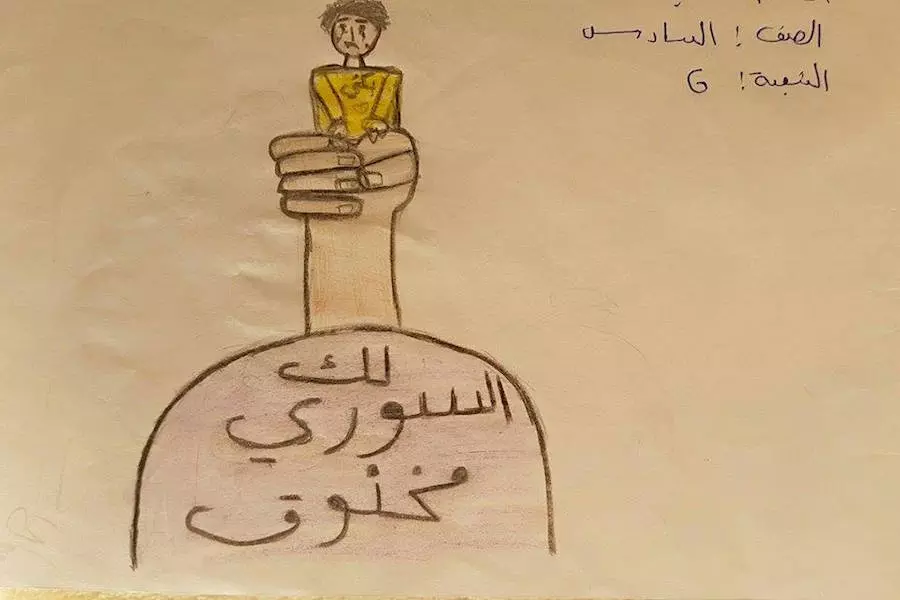 الصف: السادس
الشعبة: G
لك
السوري
مخنوق